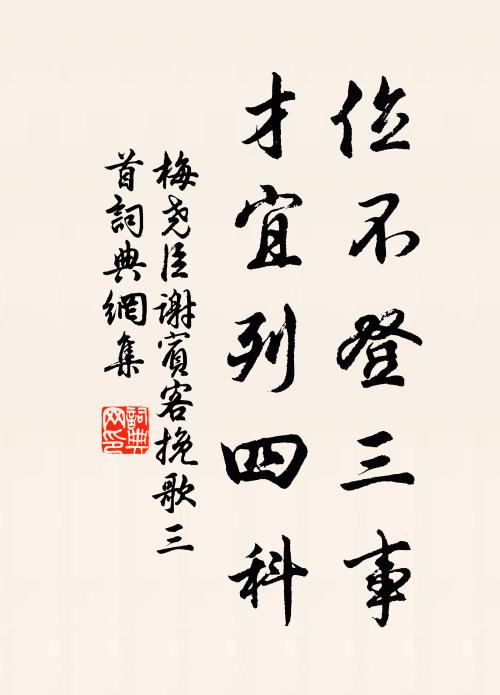 位不登三事
才宜列四科
梅尧臣謝賓客挽歌三
首詞典網集
詞典網印